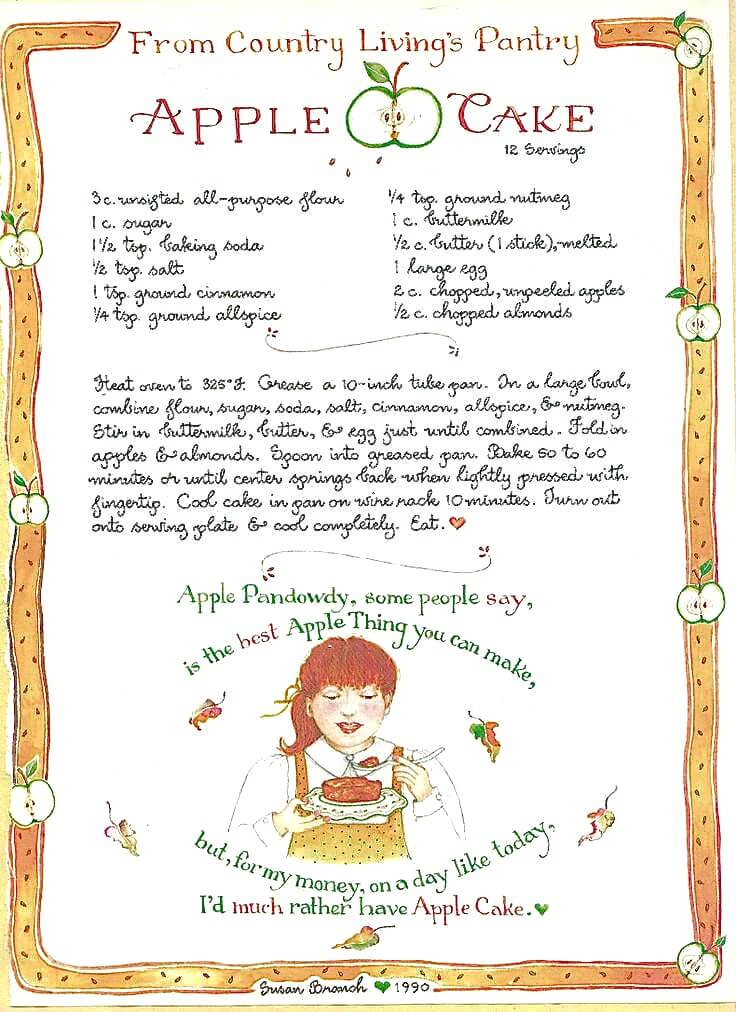 From Country Living's Pantry
APPLE CAKE
12 Servings
3 c. unsifted all-purpose flour
1 c. sugar
1 1/2 tsp. baking soda
1/2 tsp. salt
1 tsp. ground cinnamon
1/4 tsp. ground allspice
1/4 tsp. ground nutmeg
1 c. buttermilk
1/2 c. butter (1 stick), melted
1 large egg
2 c. chopped, unpeeled apples
1/2 c. chopped almonds
Heat oven to 325°F. Grease a 10-inch tube pan. In a large bowl,
combine flour, sugar, soda, salt, cinnamon, allspice, & nutmeg.
Stir in buttermilk, butter, & egg just until combined. Fold in
apples & almonds. Spoon into greased pan. Bake 50 to 60
minutes or until center springs back when lightly pressed with
fingertip. Cool cake in pan on wire rack 10 minutes. Turn out
onto serving plate & cool completely. Eat. ♥
Apple Pandowdy, some people say,
is the best Apple Thing you can make,
but, for my money, on a day like today,
I'd much rather have Apple Cake. ♥
Susan Branch ♥ 1990